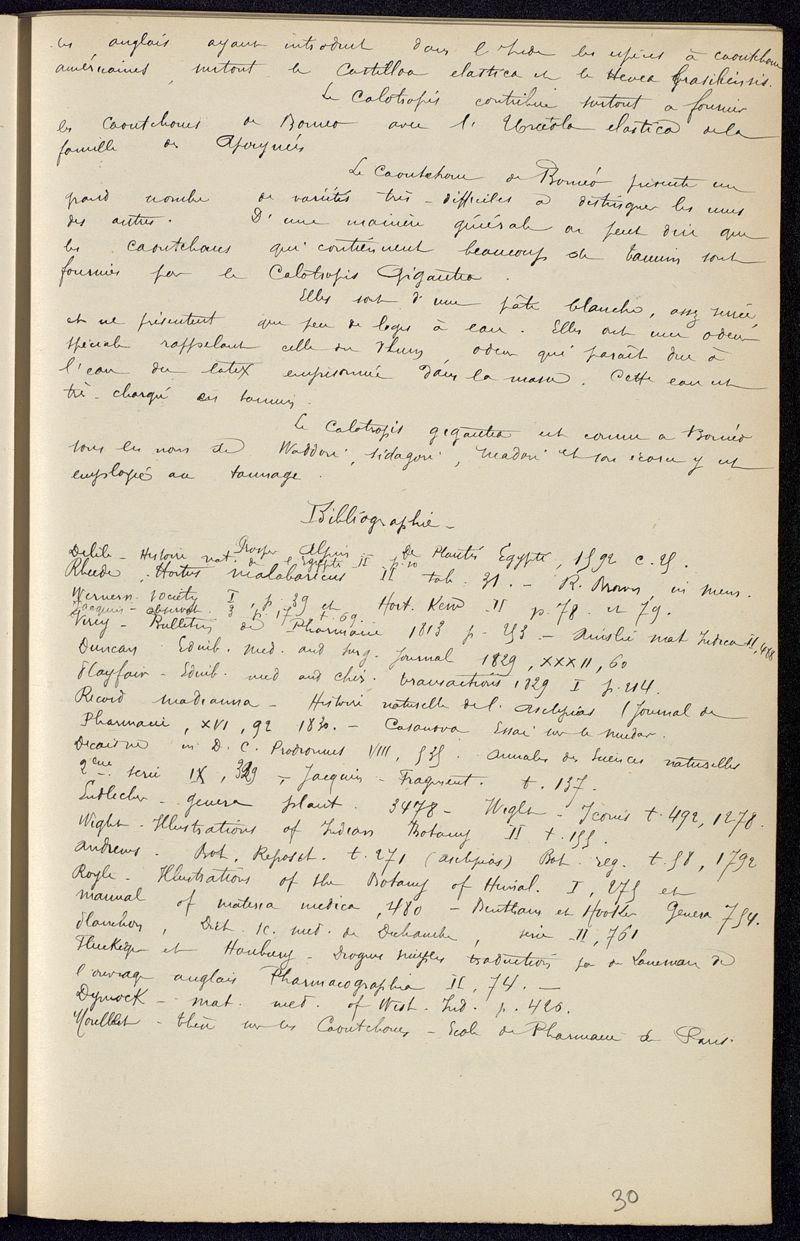 les anglais ayant introduit dans l'Inde les espèces à caoutchouc
américaines, surtout le Castilloa elastica et le Hevea brasiliensis.
Le Calotropis contribue surtout a fournir
les Caoutchoucs de Borneo avec l'Urceola elastica de la
famille des Apocynées
Le Caoutchouc de Bornéo présente un
grand nombre de variétés très-difficiles à distinguer les unes
des autres. D'une manière générale on peut dire que
les caoutchoucs qui contiennent beaucoup de tannin sont
fournies par le Calotropis Gigantea.
Elles sont d'une pâte blanche, assez serrée,
et ne présentent que peu de loges à eau. Elles ont une odeur
spéciale rappelant celle du Rhum, odeur qui paraît due à
l'eau du latex emprisonnée dans la masse. Cette eau est
très-chargée en tannin.
Le Calotropis gigantea est connue a Bornéo
sous les noms de Waddori, bidagori, madori et son écorce y est
employée au tannage.
Bibliographie-
Prosper Alpin de Plantis Egypte, 1592 c. 25.
Delile - Histoire nat. de l'Egypte II p. 10
Rheede. Hortus malabaricus II tab. 31. - R. Brown, in mem.
Werner. Society I, p. 39 et Hort. Kew II p. 78 et 79.
Jacquin - observat. 3 p. 17 t. 69.
Virey - Bulletin de Pharmacie 1813 p. 253 - Ainslie mat Indica II, 488
Duncan Edinb. med. and surg. Journal 1829, XXXII, 60
Playfair - Edinb. med and chir. transactions 1829 I p. 414.
Ricord madianna - Histoire naturelle de l'asclepias (Journal de
Pharmacie, XVI, 92 1830. - Casanova Essai sur le mudar.
Decaisne in D. C. Prodromus VIII, 535. Annales des Sciences naturelles
2eme serie IX, 329 - Jacquin - Fragment. t. 137.
Endlicher - genera plant. 3478 - Wight - Icones t. 492, 1278.
Wight. Illustrations of Indian Botany II t. 155.
Andrews. Bot. Reposit. t. 271 (asclepias) Bot. reg. t. 58, 1792
Royle. Illustrations of the Botany of Himal. I, 275 et
manual of materia medica, 480 - Bentham et Hooker Genera 754.
Planchon, Dict. sc. med. de Dechambre, serie II, 761
Fluckiger et Hanbury - Drogues simples traduction par de Lanessan de
l'ouvrage anglais Pharmacographia II, 74. -
Dymock - mat. med. of West. Ind. p. 426.
Morellet - thèse sur les Caoutchoucs - Ecole de Pharmacie de Paris.
30